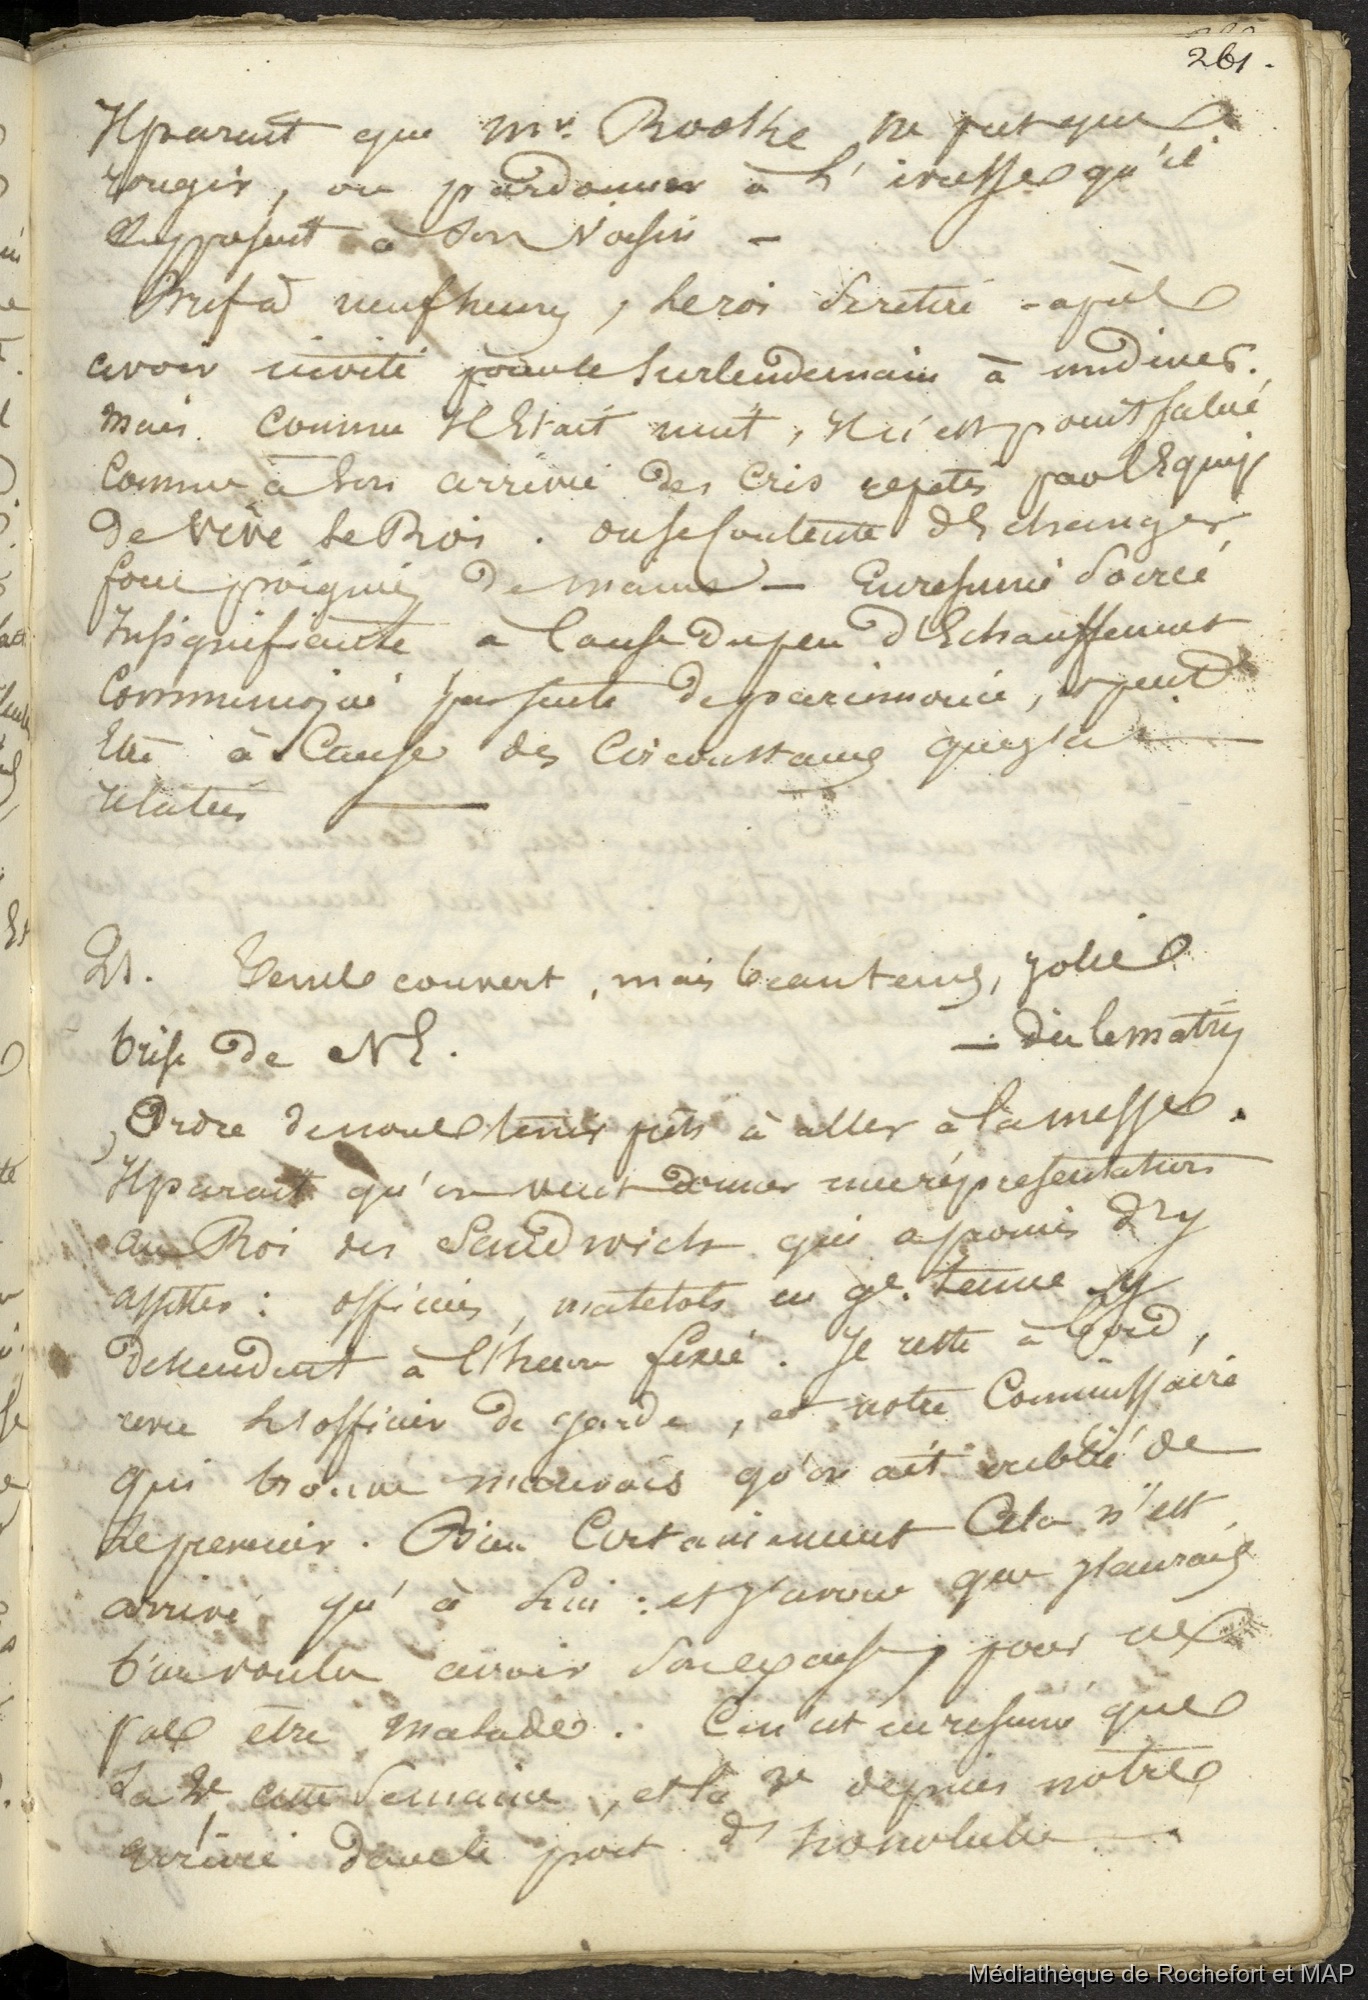 261.
Il parait que mr. Rooke ne fut que
rougir, ou pardonner à l'ivresse qu'il
supposait à son voisin —
Bref à neuf heures, le roi se retire - après
avoir invité pour le surlendemain à un diner.
mais comme il était nuit, il n'est point salué
comme à son arrivée des cris repetés par l'Equip
de Vive le Roi. on se contente d'Echanger
force poignées de mains — En resumé soirée
Insignifiante a cause du peu d'Echauffement
communiqué par suite de parcimonie, et peut
Etre à cause des Circonstances que j'ai
relatées
21. Temps couvert, mais beau tems, jolie
brise de NE. — dès le matin
Ordre de nous tenir prêts à aller à la messe.
Il parait qu'on veut donner une réprésentation
au Roi des Sandwich qui a promis d'y
assister : officiers, matelots en gde. tenue y
descendent à l'heure fixée. Je reste à bord,
avec l'officier de garde, et notre Commissaire
qui trouve mauvais qu'on ait oublié de
le prevenir. Bien Certainement Cela n'est
arrivé qu' à lui : et j'avoue que j'aurais
bien voulu avoir son excuse, pour ne
pas être malade. Ce n'est en resumé que
la 2e cette semaine, et la 3e depuis notre
arrivée dans le port d'honolulu
Médiathèque de Rochefort et MAP